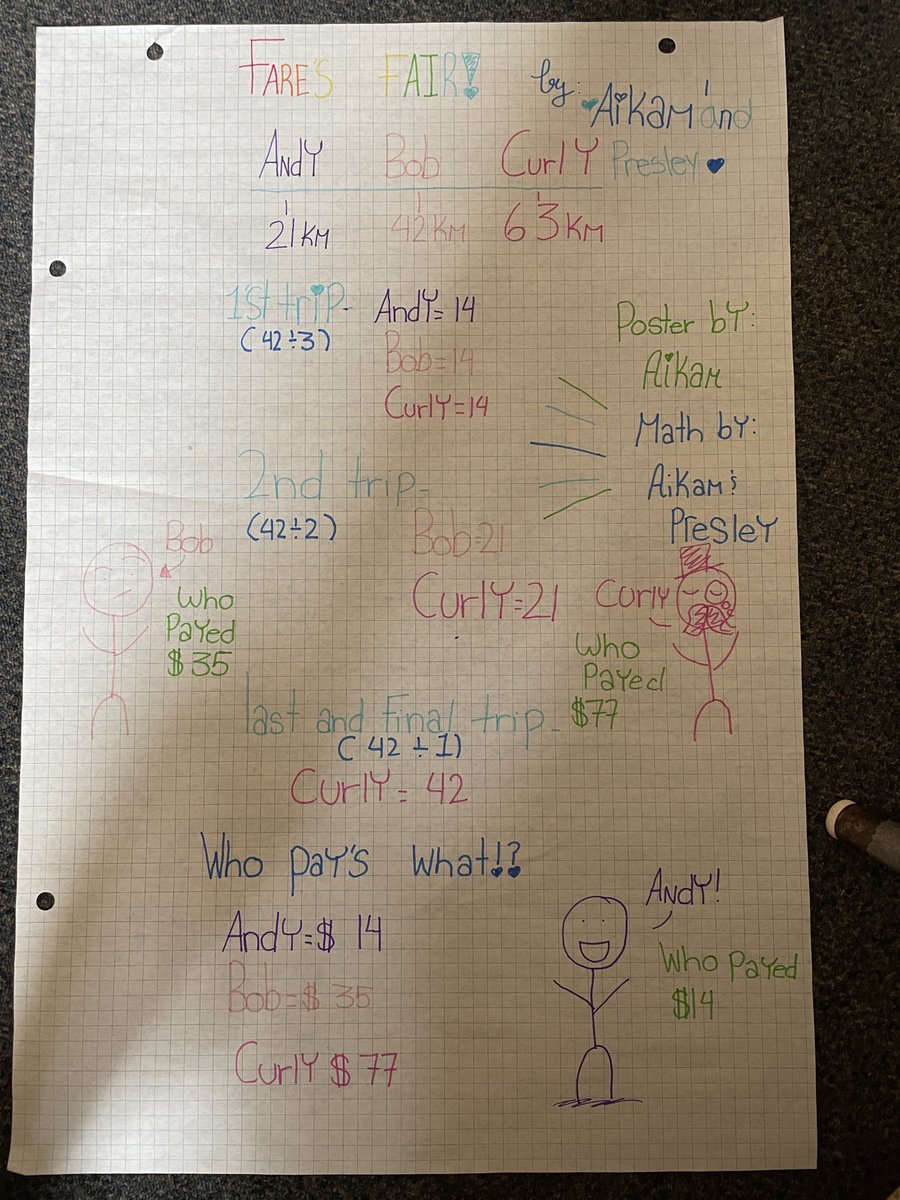 FARE'S FAIR! by: AiKAM and
Presley
ANdY Bob CurlY
21KM 42KM 63KM
1'St triP- AndY=14
(42÷3)
Bob=14
CurlY=14
Poster bY:
AiKAM
Math bY:
AiKAM &
PresleY
2nd trip-
(42÷2)
Bob=21
CurlY=21
Bob
Who
PaYed
$35
Curly
Who
Payed
$77
last and final trip-
(42÷1)
CurlY= 42
Who paY's what!?
AndY=$ 14
Bob=$ 35
CurlY $ 77
ANdY!
Who PaYed
$14